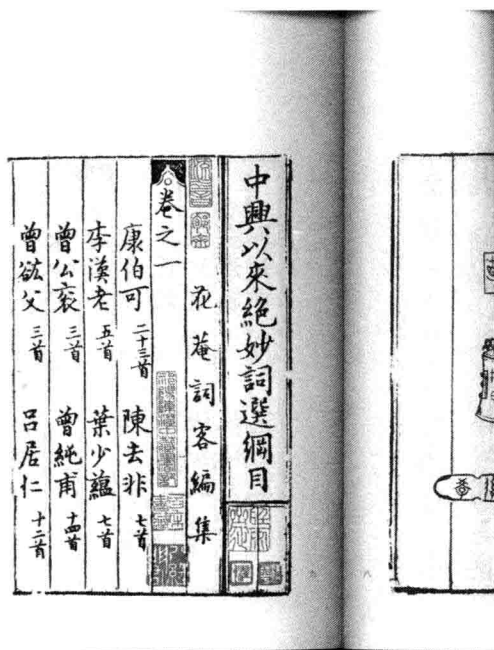 中興以來絕妙詞選綱目
花菴詞客編集
卷之一
康伯可 二十三首 陳去非 七首
李漢老 五首 葉少蘊 七首
曾公袞 三首 曾純甫 十四首
曾紘父 三首 呂居仁 十二首